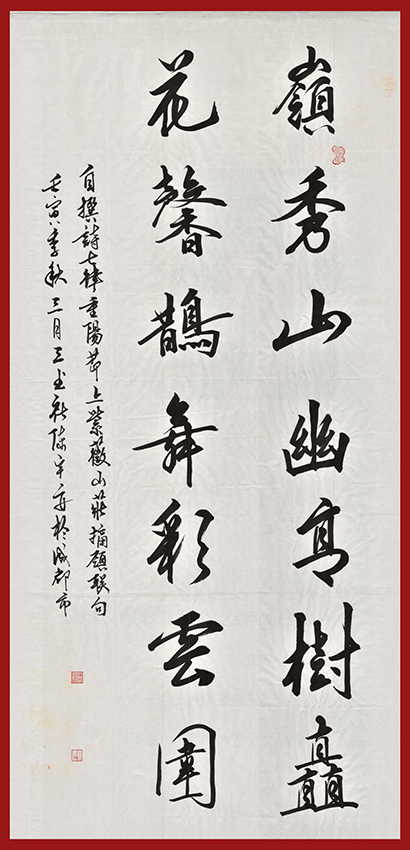 嶺秀山幽高樹矗
花馨鵲舞彩雲圍
自撰詩七律重陽節上紫薇山莊摘頷聯句
壬寅季秋三月三 於成都市